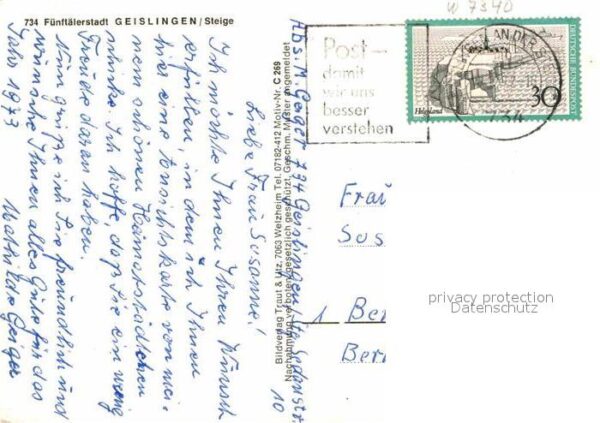 W 7340
734 Fünftälerstadt GEISLINGEN/Steige
Liebe Frau Susanne!
Ich möchte Ihnen Ihren Wunsch
erfüllen, in dem ich Ihnen
hier eine Ansichtskarte von mei-
nem schönen Heimatstädtchen
schicke. Ich hoffe, daß Sie ein wenig
Freude daran haben.
Nun grüße ich Sie freundlich und
wünsche Ihnen alles Gute für das
Jahr 1973
Mathilde Geiger
Abs. M. Geiger 734 Geislingen/Stg.
10
Bildverlag Traut & Utz, 7063 Welzheim Tel. 07182-412 Motiv-Nr. C 269
Nachahmung verboten/gesetzlich geschützt, Geschm. Muster angemeldet
Post –
damit
wir uns
besser
verstehen
AN DER ST
734
DEUTSCHE BUNDESPOST
Helgoland
30
Frau
Sus
1 Ber
Ber
privacy protection
Datenschutz